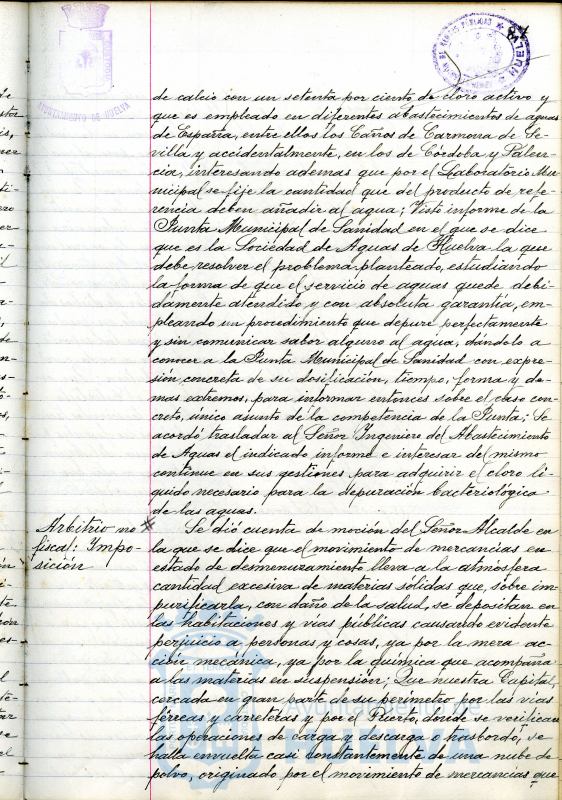 AYUNTAMIENTO DE HUELVA
de calcio con un setenta por ciento de cloro activo y
que es empleado en diferentes abastecimientos de aguas
de España, entre ellos los Caños de Carmona de Se-
villa y accidentalmente, en los de Córdoba y Palen-
cia, interesando ademas que por el Laboratorio Mu-
nicipal se fije la cantidad que del producto de refe-
rencia deben añadir al agua; Visto informe de la
Junta Municipal de Sanidad en el que se dice
que es la Sociedad de Aguas de Huelva la que
debe resolver el problema planteado, estudiando
la forma de que el servicio de aguas quede debi-
damente atendido y con absoluta garantía, em-
pleando un procedimiento que depure perfectamente
y sin comunicar sabor alguno al agua, dándolo a
conocer a la Junta Municipal de Sanidad con expre-
sión concreta de su dosificación, tiempo, forma y de-
mas extremos, para informar entonces sobre el caso con-
creto, único asunto de la competencia de la Junta; Se
acordó trasladar al Señor Ingeniero del Abastecimiento
de Aguas el indicado informe e interesar del mismo
continue en sus gestiones para adquirir el cloro lí-
quido necesario para la depuración bacteriológica
de las aguas.
Arbitrio no
fiscal: Impo-
sición
Se dió cuenta de moción del Señor Alcalde en
la que se dice que el movimiento de mercancías en
estado de desmenuzamiento lleva a la atmósfera
cantidad excesiva de materias sólidas que, sobre im-
purificarla, con daño de la salud, se depositan en
las habitaciones y vías públicas causando evidente
perjuicio a personas y cosas, ya por la mera ac-
ción mecánica, ya por la química que acompaña
a las materias en suspensión; Que nuestra Capital,
cercada en gran parte de su perímetro por las vías
férreas y carreteras y por el Puerto, donde se verifican
las operaciones de carga y descarga o trasbordo, se
halla envuelta casi constantemente de una nube de
polvo, originado por el movimiento de mercancías que
Ayuntamiento de
HUELVA